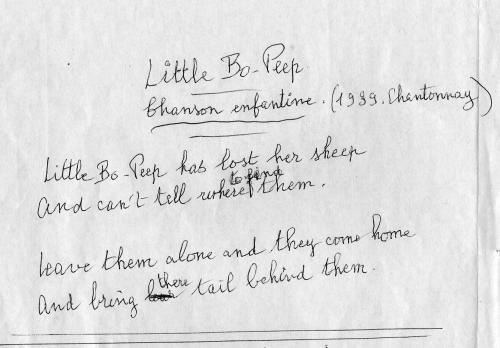 Little Bo-Peep
Chanson enfantine. (1989. Chantonnay)
Little Bo-Peep has lost her sheep
And can't tell where to find them.
Leave them alone and they come home
And bring there tail behind them.